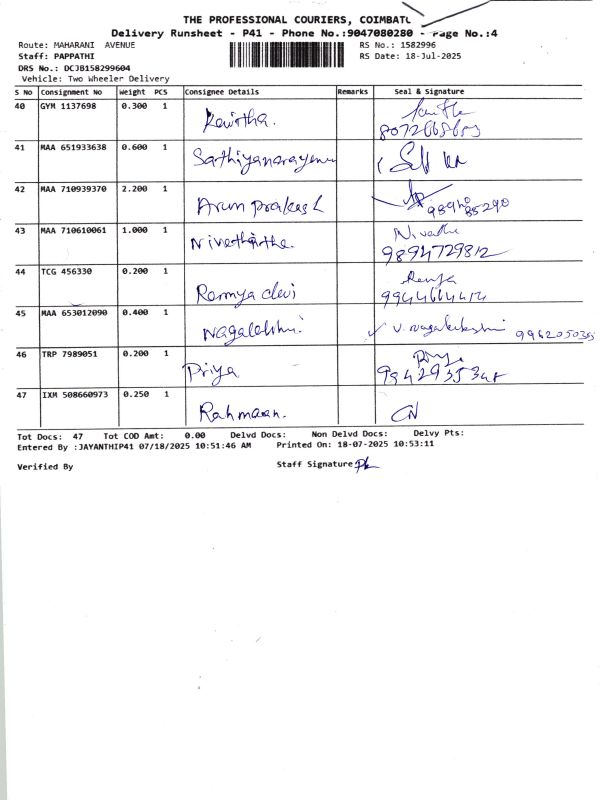 THE PROFESSIONAL COURIERS, COIMBATO
Delivery Runsheet - P41 - Phone No.:9047080280 - Page No.:4
Route: MAHARANI AVENUE RS No.: 1582996
Staff: PAPPATHI RS Date: 18-Jul-2025
DRS No.: DCJB158299604
Vehicle: Two Wheeler Delivery
S No Consignment No Weight PCS Consignee Details Remarks Seal & Signature
40 GYM 1137698 0.300 1 Kavitha.
41 MAA 651933638 0.600 1 Sathiyanarayanan
42 MAA 710939370 2.200 1 Arun prakash 9894085290
43 MAA 710610061 1.000 1 Nivethitha. Nivetha
9894729812
44 TCG 456330 0.200 1 Ramya devi Ramya
9944664414
45 MAA 653012090 0.400 1 Nagalakshmi V. Nagalakshmi
46 TRP 7989051 0.200 1 Priya Priya
47 IXM 508660973 0.250 1 Rahmaan.
Tot Docs: 47 Tot COD Amt: 0.00 Delvd Docs: Non Delvd Docs: Delvy Pts:
Entered By :JAYANTHIP41 07/18/2025 10:51:46 AM Printed On: 18-07-2025 10:53:11
Verified By Staff Signature